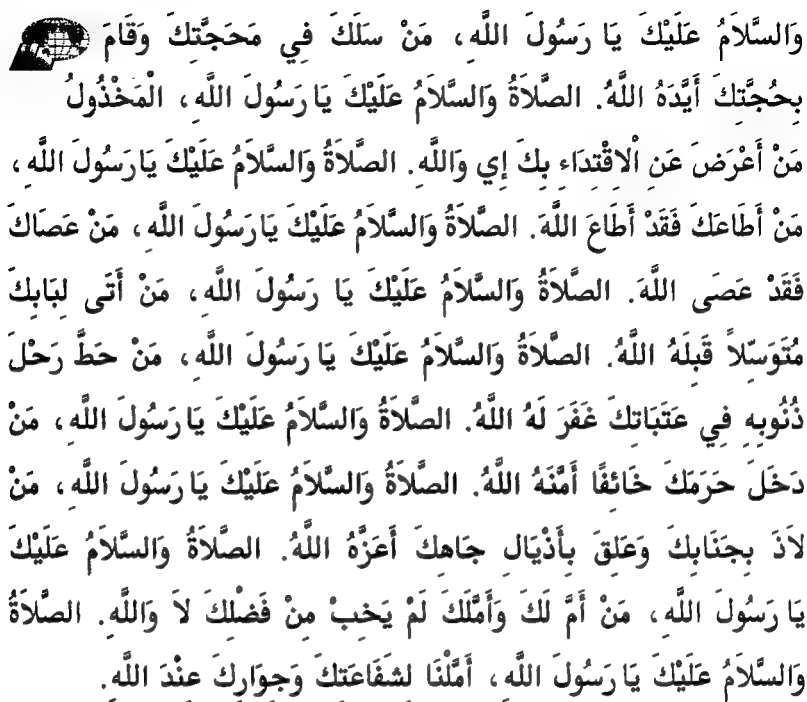 وَالسَّلاَمُ عَلَيْكَ يَا رَسُولَ اللَّهِ، مَنْ سَلَكَ فِي مَحَجَّتِكَ وَقَامَ
بِحُجَّتِكَ أَيَّدَهُ اللَّهُ. الصَّلاَةُ وَالسَّلاَمُ عَلَيْكَ يَا رَسُولَ اللَّهِ، الْمَخْذُولُ
مَنْ أَعْرَضَ عَنِ الْاِقْتِدَاءِ بِكَ إِي وَاللَّهِ. الصَّلاَةُ وَالسَّلاَمُ عَلَيْكَ يَارَسُولَ اللَّهِ،
مَنْ أَطَاعَكَ فَقَدْ أَطَاعَ اللَّهَ. الصَّلاَةُ وَالسَّلاَمُ عَلَيْكَ يَارَسُولَ اللَّهِ، مَنْ عَصَاكَ
فَقَدْ عَصَى اللَّهَ. الصَّلاَةُ وَالسَّلاَمُ عَلَيْكَ يَا رَسُولَ اللَّهِ، مَنْ أَتَى لِبَابِكَ
مُتَوَسِّلاً قَبِلَهُ اللَّهُ. الصَّلاَةُ وَالسَّلاَمُ عَلَيْكَ يَا رَسُولَ اللَّهِ، مَنْ حَطَّ رَحْلَ
ذُنُوبِهِ فِي عَتَبَاتِكَ غَفَرَ لَهُ اللَّهُ. الصَّلاَةُ وَالسَّلاَمُ عَلَيْكَ يَا رَسُولَ اللَّهِ، مَنْ
دَخَلَ حَرَمَكَ خَائِفًا أَمَّنَهُ اللَّهُ. الصَّلاَةُ وَالسَّلاَمُ عَلَيْكَ يَا رَسُولَ اللَّهِ، مَنْ
لاَذَ بِجَنَابِكَ وَعَلِقَ بِأَذْيَالِ جَاهِكَ أَعَزَّهُ اللَّهُ. الصَّلاَةُ وَالسَّلاَمُ عَلَيْكَ
يَا رَسُولَ اللَّهِ، مَنْ أَمَّ لَكَ وَأَمَّلَكَ لَمْ يَخِبْ مِنْ فَضْلِكَ لاَ وَاللَّهِ. الصَّلاَةُ
وَالسَّلاَمُ عَلَيْكَ يَا رَسُولَ اللَّهِ، أَمَّلْنَا لِشَفَاعَتِكَ وَجِوَارِكَ عِنْدَ اللَّهِ.